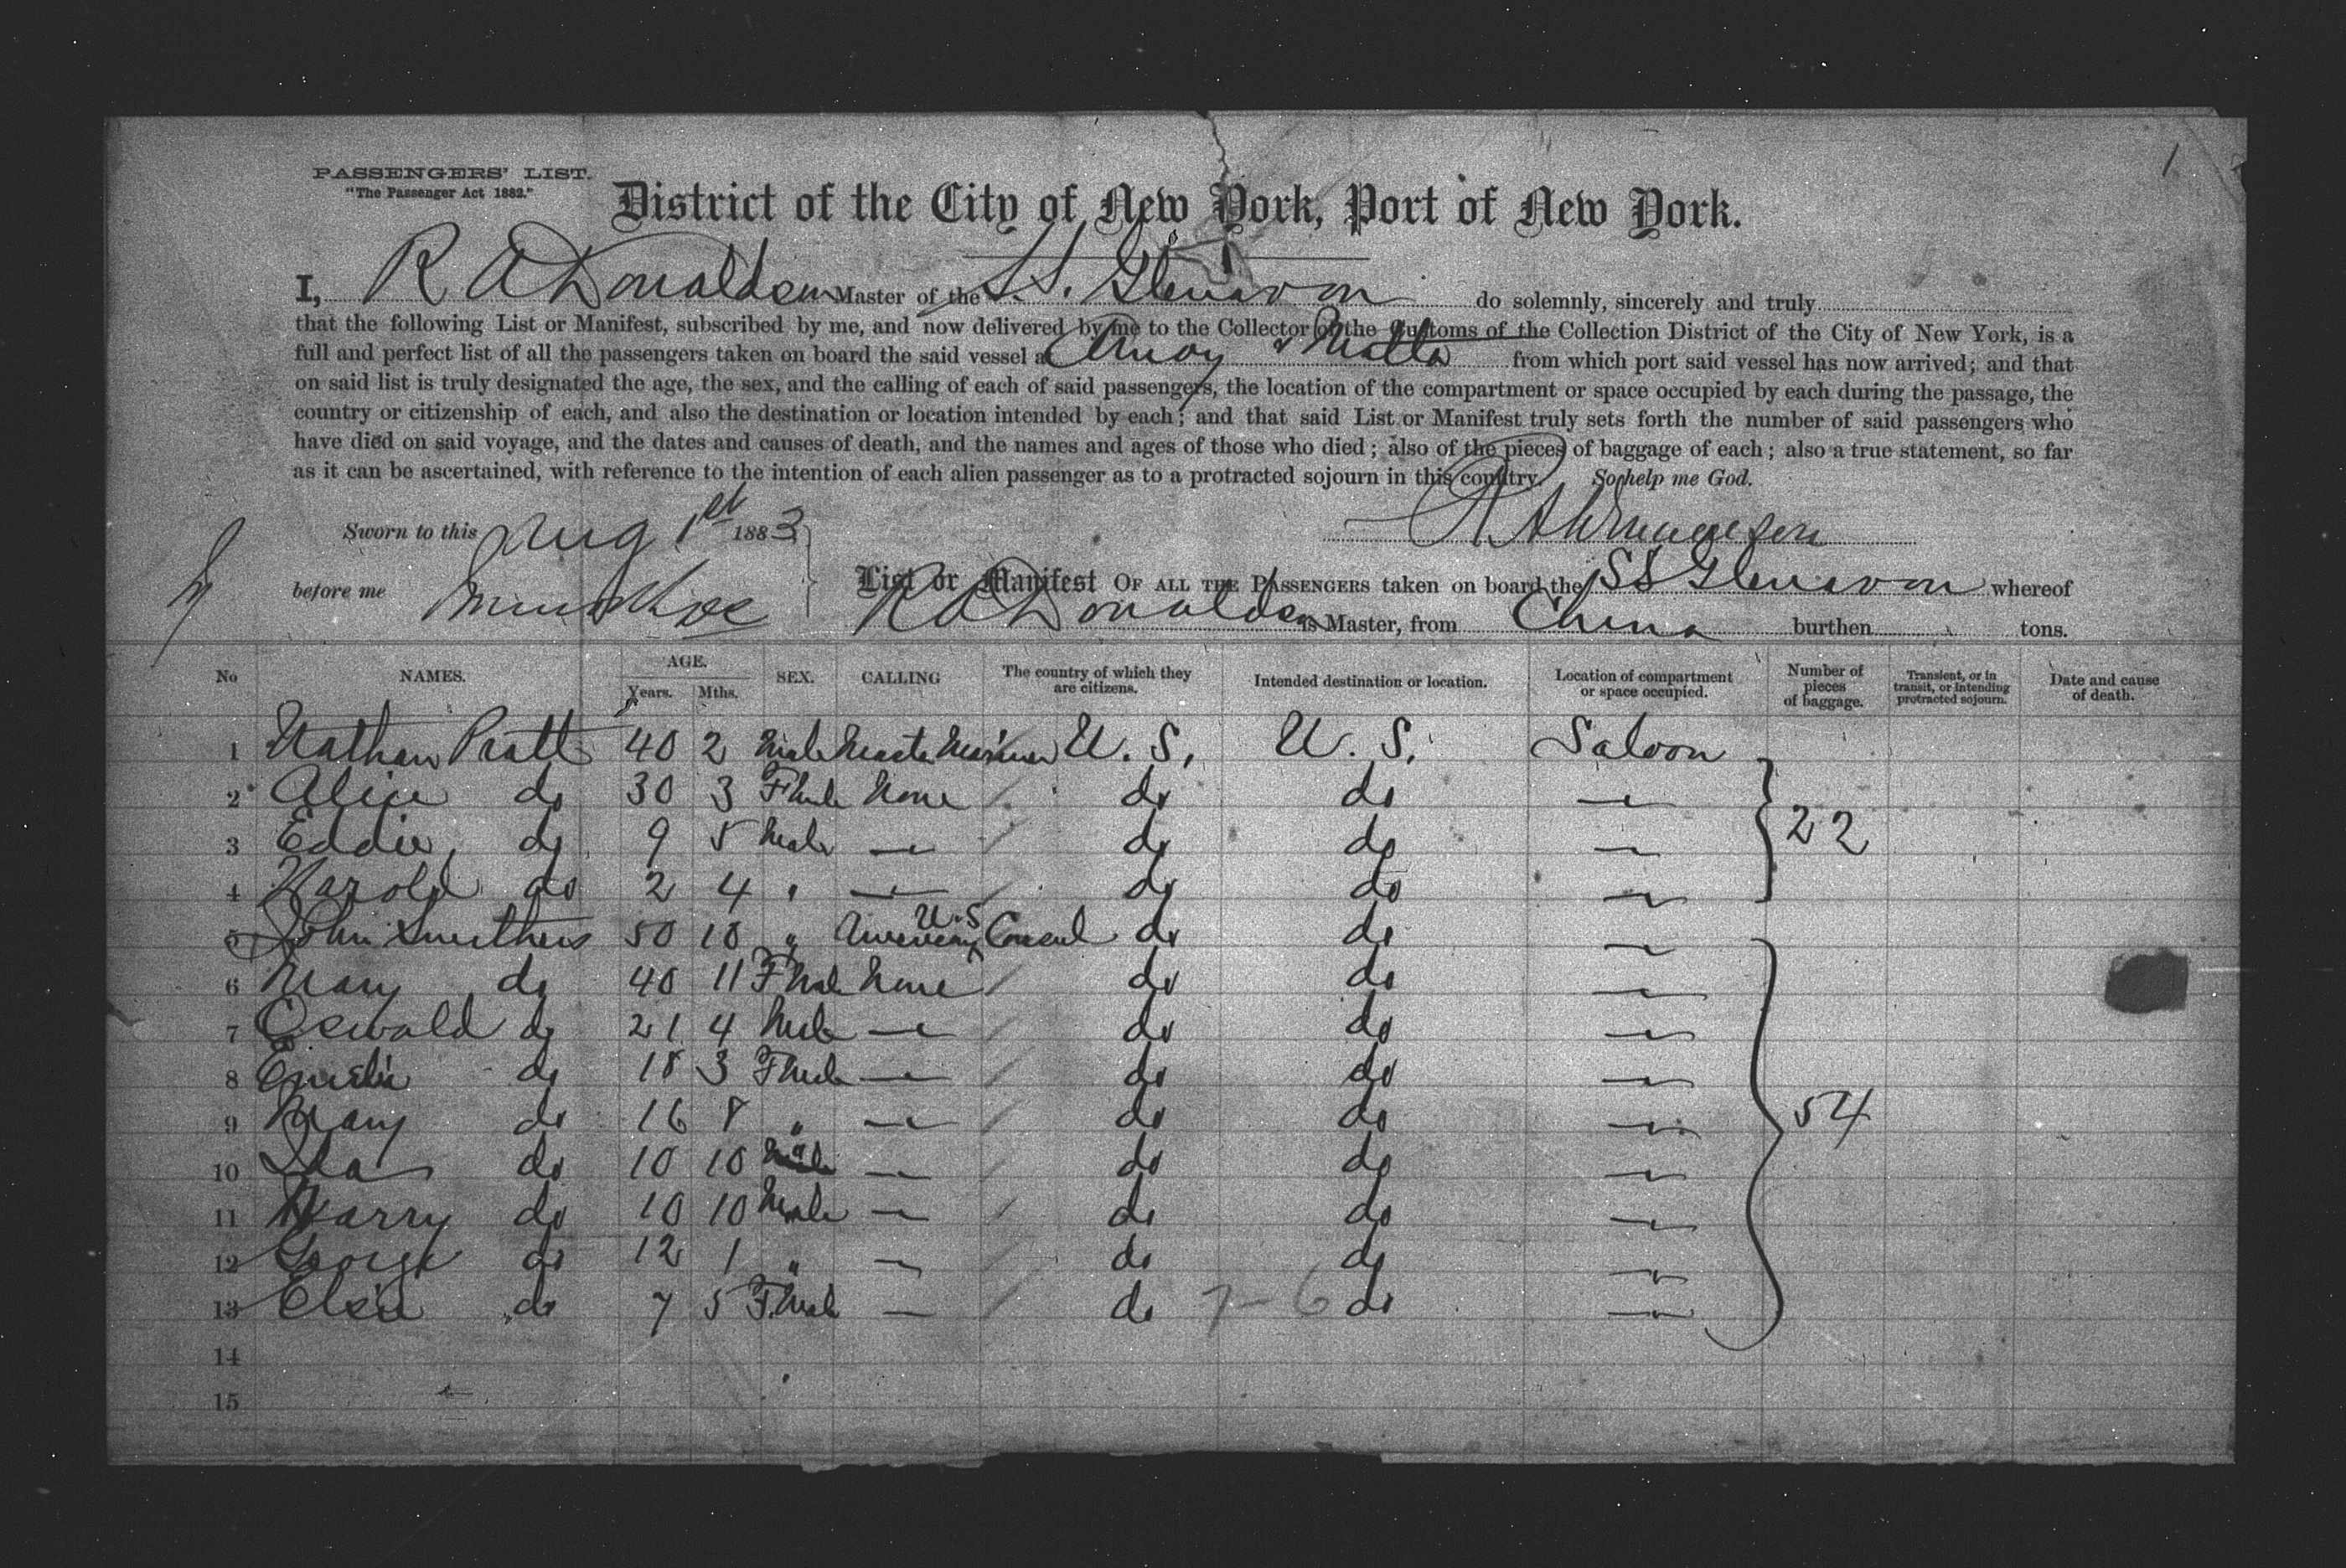 1
PASSENGERS' LIST.
"The Passenger Act 1882."
District of the City of New York, Port of New York.
I, R A Donaldson Master of the S.S. Glenavon do solemnly, sincerely and truly
that the following List or Manifest, subscribed by me, and now delivered by me to the Collector of the Customs of the Collection District of the City of New York, is a
full and perfect list of all the passengers taken on board the said vessel at Amoy & Malta from which port said vessel has now arrived; and that
on said list is truly designated the age, the sex, and the calling of each of said passengers, the location of the compartment or space occupied by each during the passage, the
country or citizenship of each, and also the destination or location intended by each; and that said List or Manifest truly sets forth the number of said passengers who
have died on said voyage, and the dates and causes of death, and the names and ages of those who died; also of the pieces of baggage of each; also a true statement, so far
as it can be ascertained, with reference to the intention of each alien passenger as to a protracted sojourn in this country. So help me God.
Sworn to this Aug 1st 1883 R A Donaldson
before me
List or Manifest OF ALL THE PASSENGERS taken on board the SS Glenavon whereof
R A Donaldson is Master, from China burthen tons.
No NAMES. AGE. Years. Mths. SEX. CALLING The country of which they are citizens. Intended destination or location. Location of compartment or space occupied. Number of pieces of baggage. Transient, or in transit, or intending protracted sojourn. Date and cause of death.
1 Nathan Pratt 40 2 Male Master Mariner U. S. U. S. Saloon
2 Alice do 30 3 Fmale None do do 〃
3 Eddie do 9 5 Male 〃 do do 〃 22
4 Harold do 2 4 〃 〃 do do 〃
5 John Smithers 50 10 〃 American U.S Consul do do 〃
6 Mary do 40 11 Fmale None do do 〃
7 Oswald do 21 4 Male 〃 do do 〃
8 do 18 3 Fmale 〃 do do 〃
9 Mary do 16 8 〃 〃 do do 〃 54
10 Ida do 10 10 〃 〃 do do 〃
11 Harry do 10 10 Male 〃 do do 〃
12 George do 12 1 〃 〃 do do 〃
13 Elsie do 7 5 Fmale 〃 do 7-6 do 〃
14
15